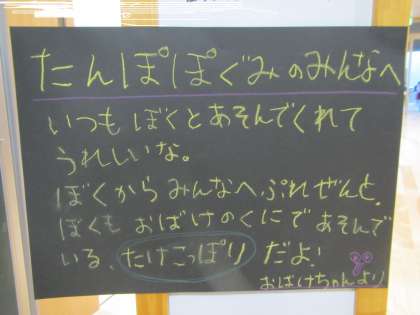 たんぽぽぐみのみんなへ
いつもぼくとあそんでくれて
うれしいな。
ぼくからみんなへぷれぜんと。
ぼくもおばけのくにであそんで
いる、たけこっぽりだよ!
おばけちゃんより